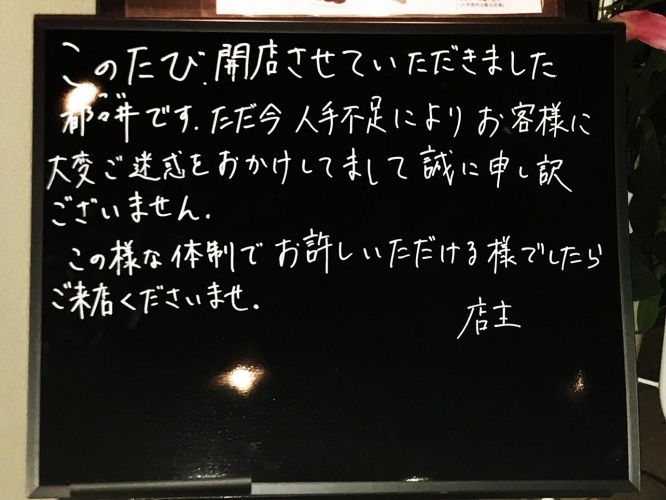 このたび、開店させていただきました
都々井です。ただ今 人手不足により お客様に
大変ご迷惑をおかけしてまして 誠に申し訳
ございません。
この様な体制で お許しいただける様でしたら
ご来店くださいませ。
店主